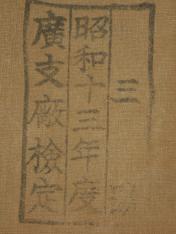 三
昭和十三年度
廣支廠檢定